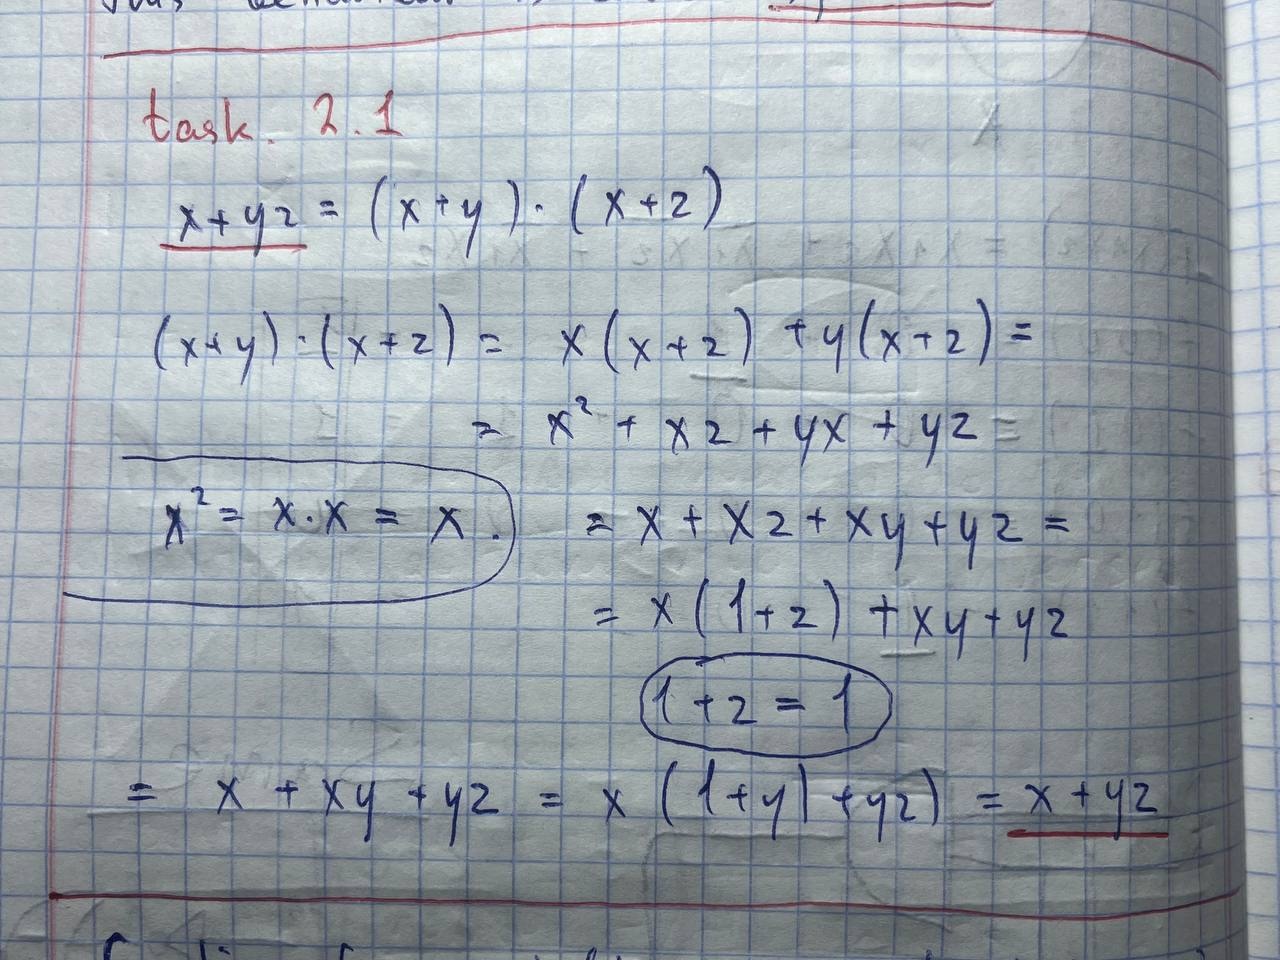 task. 2.1
x+yz = (x+y)·(x+z)
(x+y)·(x+z) = x(x+z) + y(x+z) =
= x² + xz + yx + yz =
x² = x·x = x.
= x + xz + xy + yz =
= x(1+z) + xy + yz
1+z = 1
= x + xy + yz = x (1+y) + yz) = x + yz